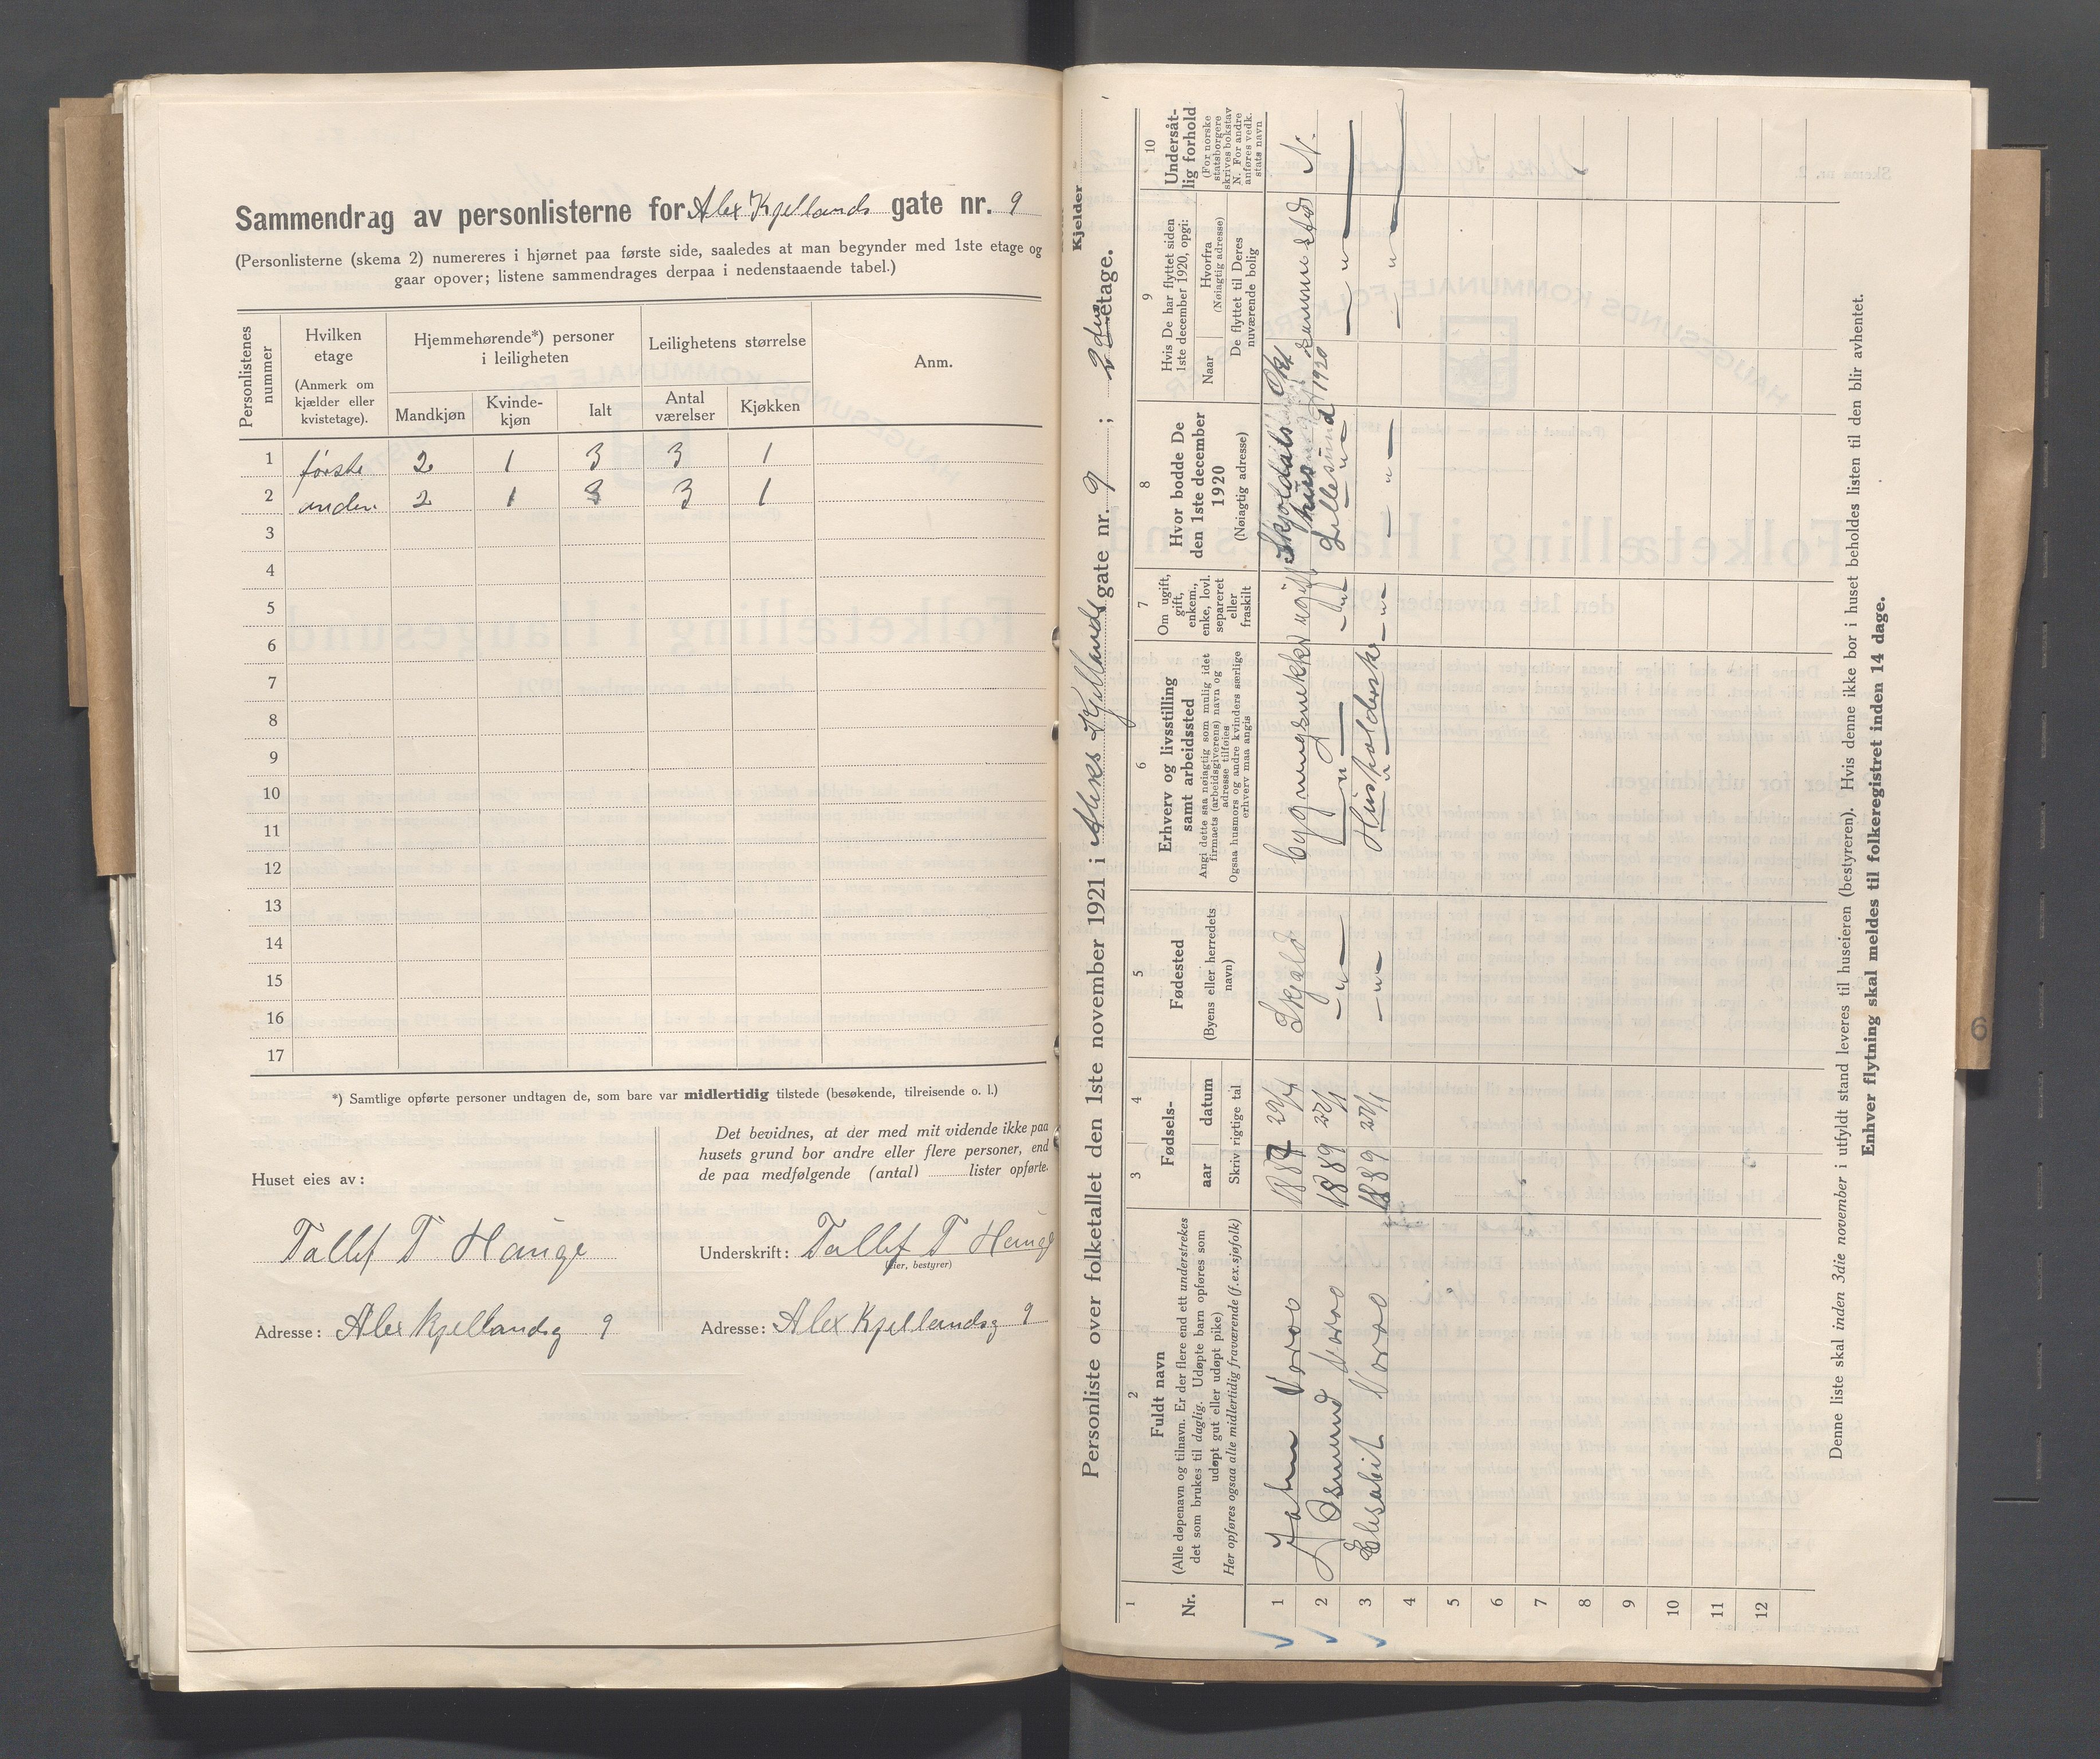 Sammendrag av personlisterne for Alex Kjellands gate nr. 9
(Personlisterne (skema 2) numereres i hjørnet paa første side, saaledes at man begynder med 1ste etage og
gaar opover; listene sammendrages derpaa i nedenstaaende tabel.)
Personlistenes nummer
Hvilken etage
(Anmerk om kjælder eller kvistetage).
Hjemmehørende*) personer i leiligheten
Leilighetens størrelse
Anm.
Mandkjøn
Kvinde-kjøn
Ialt
Antal værelser
Kjøkken
1 første 2 1 3 3 1
2 anden 2 1 3 3 1
3
4
5
6
7
8
9
10
11
12
13
14
15
16
17
*) Samtlige opførte personer undtagen de, som bare var midlertidig tilstede (besøkende, tilreisende o. l.)
Huset eies av:
Tallef T Hauge
Adresse: Alex Kjellandsg 9
Det bevidnes, at der med mit vidende ikke paa
husets grund bor andre eller flere personer, end
de paa medfølgende (antal) lister opførte.
Underskrift: Tallef T Hauge
(eier, bestyrer)
Adresse: Alex Kjellandsg 9
Kjelder
Personliste over folketallet den 1ste november 1921 i Aleks Kjellands gate nr. 9 ; 2den etage.
1
Nr.
2
Fuldt navn
(Alle døpenavn og tilnavn. Er der flere end ett understrekes
det som brukes til daglig. Udøpte barn opføres som
udøpt gut eller udøpt pike)
Her opføres ogsaa alle midlertidig fraværende (f.ex. sjøfolk)
3 4
Fødsels-
aar datum
Skriv rigtige tal
5
Fødested
(Byens eller herredets navn)
6
Erhverv og livsstilling
samt arbeidssted
Angi dette saa nøiagtig som mulig idet
firmaets (arbeidsgiverens) navn og
adresse tilføies
Ogsaa husmors og andre kvinders særlige
erhverv maa angis
7
Om ugift,
gift,
enkem.,
enke, lovl.
separeret
eller
fraskilt
8
Hvor bodde De
den 1ste december
1920
(Nøiagtig adresse)
9
Hvis De har flyttet siden
1ste december 1920, opgi:
Naar
Hvorfra
(Nøiagtig adresse)
De flyttet til Deres
nuværende bolig
10
Undersåt-
lig forhold
(For norske
statsborgere
skrives bokstav
N. For andre
anføres vedk.
stats navn
1 Vorao 1887 Skjold bygningsnekker ugift Skjoldals hus Okt 1920 samme sted N.
2 Osmund Vorao 1889 22/1 — " — — " — — " — Lillesund — " —
3 Elisabit Vorao 1889 22/1 — " — Husholderske — " — — " — — " —
4
5
6
7
8
9
10
11
12
Denne liste skal inden 3die november i utfyldt stand leveres til huseieren (bestyreren). Hvis denne ikke bor i huset beholdes listen til den blir avhentet.
Enhver flytning skal meldes til folkeregistret inden 14 dage.
6